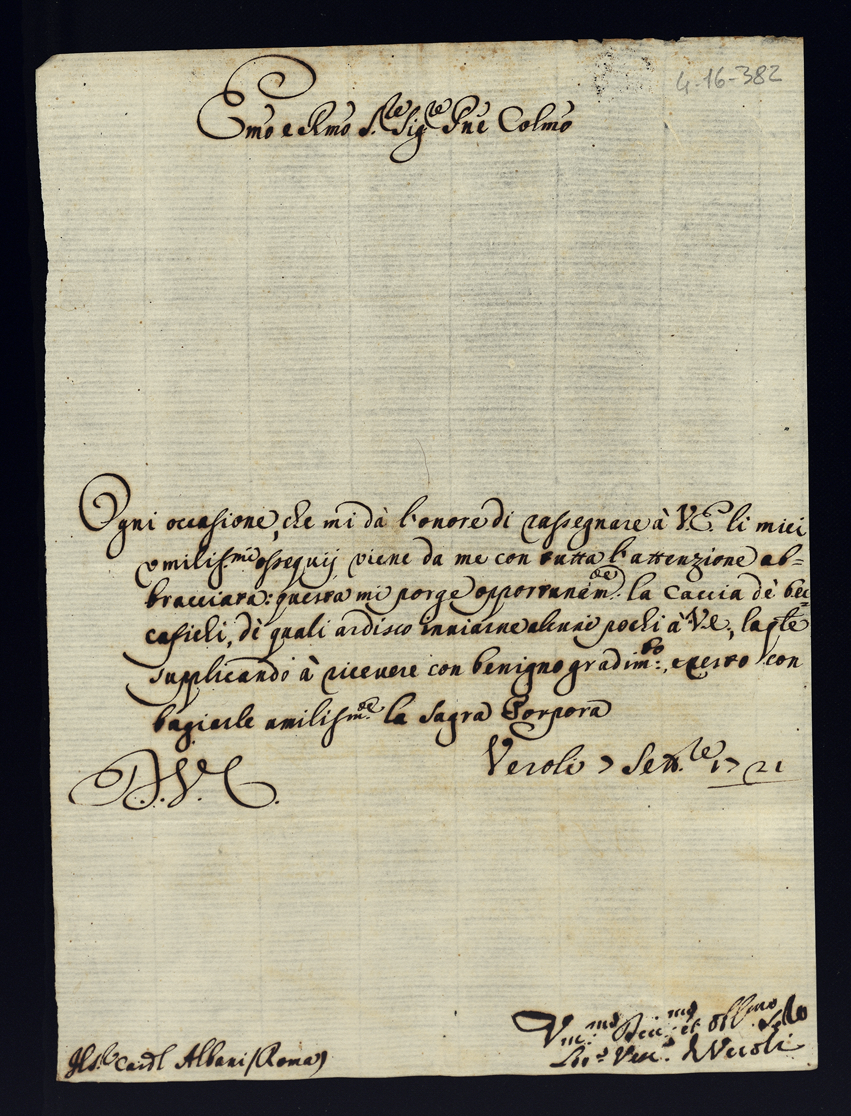 4-16-382
Emo e Rmo S.re Sig.re Pne Colmo
Ogni occasione, che mi dà l'onore di rassegnare à V.E. li miei
umilis.mi ossequij viene da me con tutta l'attenzione ab=
bracciata: questa mi porge opportunam.te la caccia dè bec=
cafichi, dè quali ardisco inviarne alcuni pochi à V.E., la qle
supplicando à ricevere con benigno gradim.to, resto con
bagiarle umilism.te la Sagra Porpora
D. V. E.
Veroli 7 Sett.re 1721
Card.l Albani (Roma)
Um.mo Dev.mo et Obb.mo
Vesc.o di Veroli